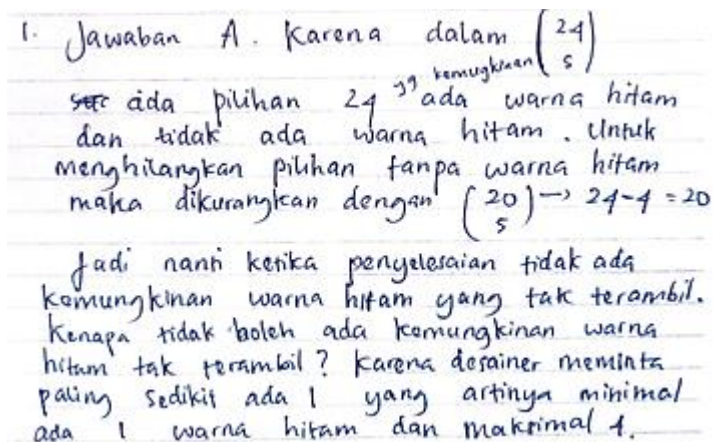 1. Jawaban A. Karena dalam (24
5)
ada pilihan 24 yg kemugkinan ada warna hitam
dan tidak ada warna hitam. Untuk
menghilangkan pilihan tanpa warna hitam
maka dikurangkan dengan (20
5) → 24-4 = 20
Jadi nanti ketika penyelesaian tidak ada
kemungkinan warna hitam yang tak terambil.
Kenapa tidak boleh ada kemungkinan warna
hitam tak terambil? Karena desainer meminta
paling sedikit ada 1 yang artinya minimal
ada 1 warna hitam dan maksimal 4.